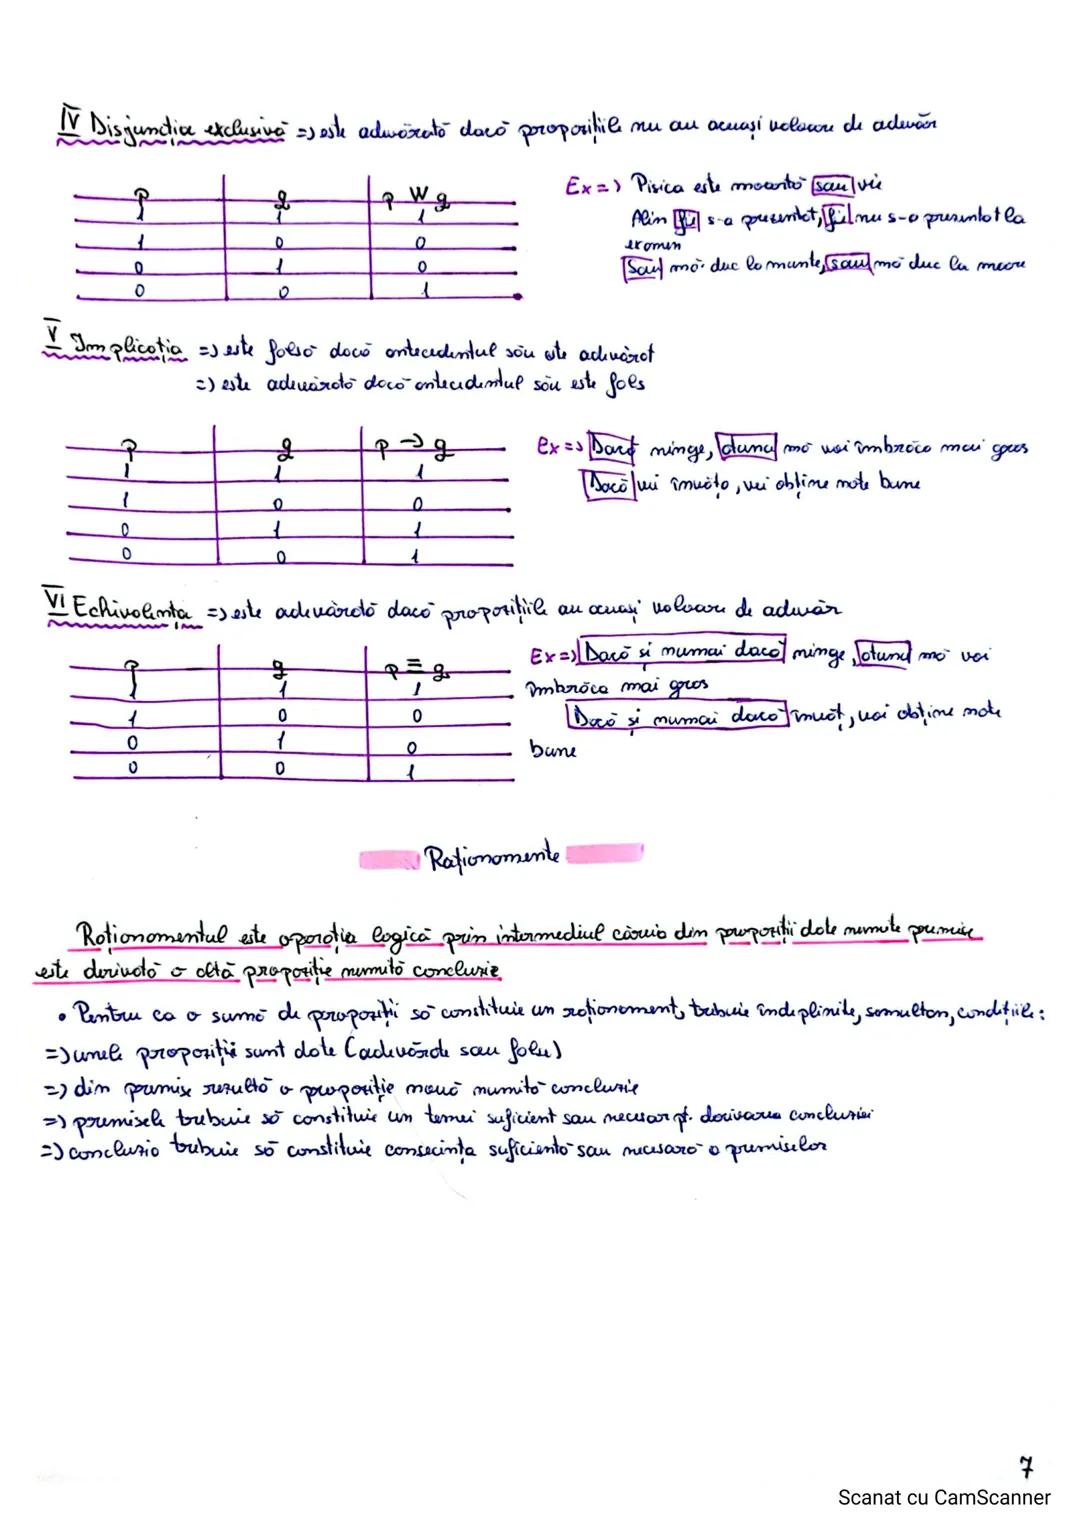 IV Disjuncția exclusivă => este adevărată dacă propozițiile nu au aceuași valoare de adevăr
p q p W q
1 1 1
1 0 0
0 1 0
0 0 1
Ex => Pisica este moartă sau vie
Alin fie s-a prezentat, fie nu s-a prezentat la
examen
Sau mă duc la munte, sau mă duc la mare
V Implicația => este falsă dacă antecedentul său este adevărat
=> este adevărată dacă antecedentul său este fals
p q p → q
1 1 1
1 0 0
0 1 1
0 0 1
Ex => Dacă ninge, atunci mă voi îmbrăca mai gros
Dacă vei învăța, vei obține note bune
VI Echivalența => este adevărată dacă propozițiile au aceuași valoare de adevăr
p q p ≡ q
1 1 1
1 0 0
0 1 0
0 0 1
Ex => Dacă și numai dacă ninge, atunci mă voi
îmbrăca mai gros
Dacă și numai dacă învăț, voi obține note
bune
Raționamente
Raționamentul este operația logică prin intermediul căruia din propoziții date numite premise
este derivată o altă propoziție numită concluzie
• Pentru ca o sumă de propoziții să constituie un raționament, trebuie îndeplinite, simultan, condițiile:
=> unele propoziții sunt date (adevărate sau false)
=> din premise rezultă o propoziție nouă numită concluzie
=> premisele trebuie să constituie un temei suficient sau necesar pt. derivarea concluziei
=> concluzia trebuie să constituie consecința suficientă sau necesară a premiselor
7
Scanat cu CamScanner